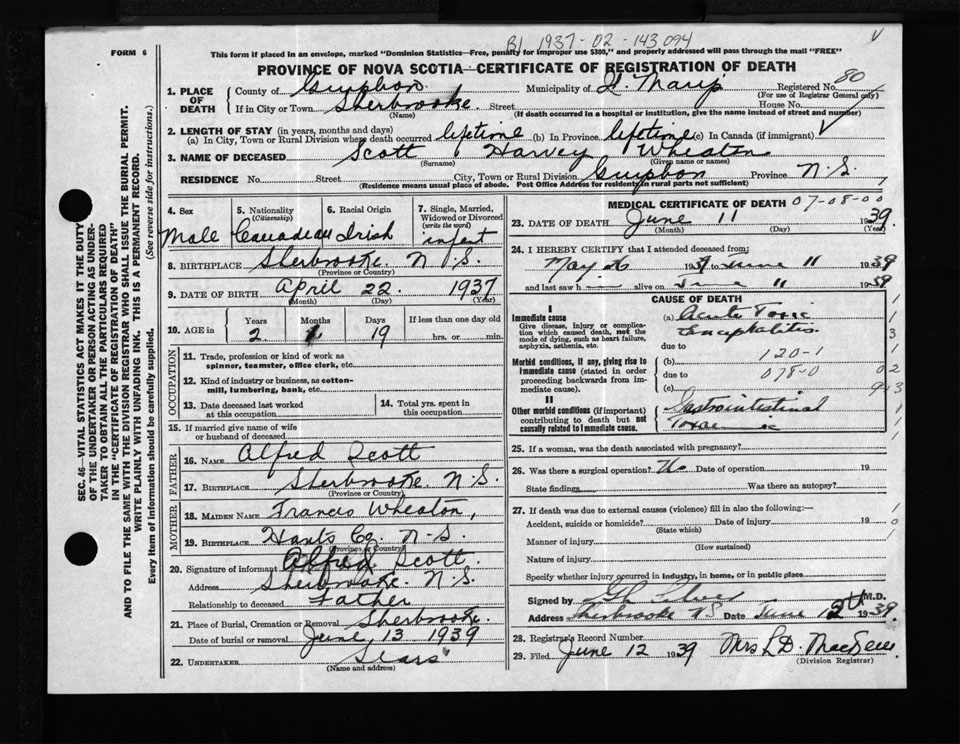 B) 1937-02-143094
V
FORM 6
This form if placed in an envelope, marked "Dominion Statistics—Free, penalty for improper use $300," and properly addressed will pass through the mail "FREE"
PROVINCE OF NOVA SCOTIA—CERTIFICATE OF REGISTRATION OF DEATH
SEC. 46—VITAL STATISTICS ACT MAKES IT THE DUTY
OF THE UNDERTAKER OR PERSON ACTING AS UNDER-
TAKER TO OBTAIN ALL THE PARTICULARS REQUIRED
IN THE "CERTIFICATE OF REGISTRATION OF DEATH"
AND TO FILE THE SAME WITH THE DIVISION REGISTRAR WHO SHALL ISSUE THE BURIAL PERMIT.
WRITE PLAINLY WITH UNFADING INK. THIS IS A PERMANENT RECORD.
Every item of information should be carefully supplied. (See reverse side for instructions.)
1. PLACE OF DEATH
County of Guysboro Municipality of St. Marys Registered No. 80
(For use of Registrar General only)
If in City or Town Sherbrooke. Street House No.
(Name) (If death occurred in a hospital or institution, give the name instead of street and number)
2. LENGTH OF STAY (in years, months and days)
(a) In City, Town or Rural Division where death occurred lifetime (b) In Province lifetime (c) In Canada (if immigrant) V
3. NAME OF DECEASED Scott Harvey Wheaton
(Surname) (Given name or names)
RESIDENCE No. Street City, Town or Rural Division Guysboro Province N.S.
(Residence means usual place of abode. Post Office Address for residents in rural parts not sufficient)
4. Sex
Male
5. Nationality
(Citizenship)
Canadian
6. Racial Origin
Irish
7. Single, Married,
Widowed or Divorced
(write the word)
infant
8. BIRTHPLACE Sherbrooke. N S.
(Province or Country)
9. DATE OF BIRTH April 22. 1937
(Month) (Day) (Year)
10. AGE in Years Months Days If less than one day old
2 1 19 hrs. or min.
OCCUPATION
11. Trade, profession or kind of work as
spinner, teamster, office clerk, etc.
12. Kind of industry or business, as cotton-
mill, lumbering, bank, etc.
13. Date deceased last worked
at this occupation
14. Total yrs. spent in
this occupation
15. If married give name of wife
or husband of deceased
FATHER
16. NAME Alfred Scott
17. BIRTHPLACE Sherbrooke. N.S.
(Province or Country)
MOTHER
18. MAIDEN NAME Francis Wheaton,
19. BIRTHPLACE Hants Co. N-S.
(Province or Country)
20. Signature of informant Alfred Scott.
Address Sherbrooke. N.S.
Relationship to deceased Father
21. Place of Burial, Cremation or Removal Sherbrooke.
Date of burial or removal June 13 1939
22. UNDERTAKER Sears
(Name and address)
MEDICAL CERTIFICATE OF DEATH 07-08-00
23. DATE OF DEATH June 11 1939.
(Month) (Day) (Year)
24. I HEREBY CERTIFY that I attended deceased from:
May 1939 to June 11 1939
and last saw him alive on June 11 1939
CAUSE OF DEATH
I
Immediate cause
Give disease, injury or complica-
tion which caused death, not the
mode of dying, such as heart failure,
asphyxia, asthenia, etc.
(a) Acute Toxic
Encephalitis
due to
Morbid conditions, if any, giving rise to
immediate cause (stated in order
proceeding backwards from im-
mediate cause).
(b) 120-1
due to 078-0
(c)
II
Other morbid conditions (if important)
contributing to death but not
causally related to immediate cause.
Gastrointestinal
25. If a woman, was the death associated with pregnancy?
26. Was there a surgical operation? No Date of operation 19
State findings Was there an autopsy?
27. If death was due to external causes (violence) fill in also the following:—
Accident, suicide or homicide? Date of injury 19
(State which)
Manner of injury
(How sustained)
Nature of injury
Specify whether injury occurred in industry, in home, or in public place
Signed by M.D.
Address Sherbrooke NS Date June 12 1939.
28. Registrar's Record Number
29. Filed June 12 1939 Mrs L D.
(Division Registrar)